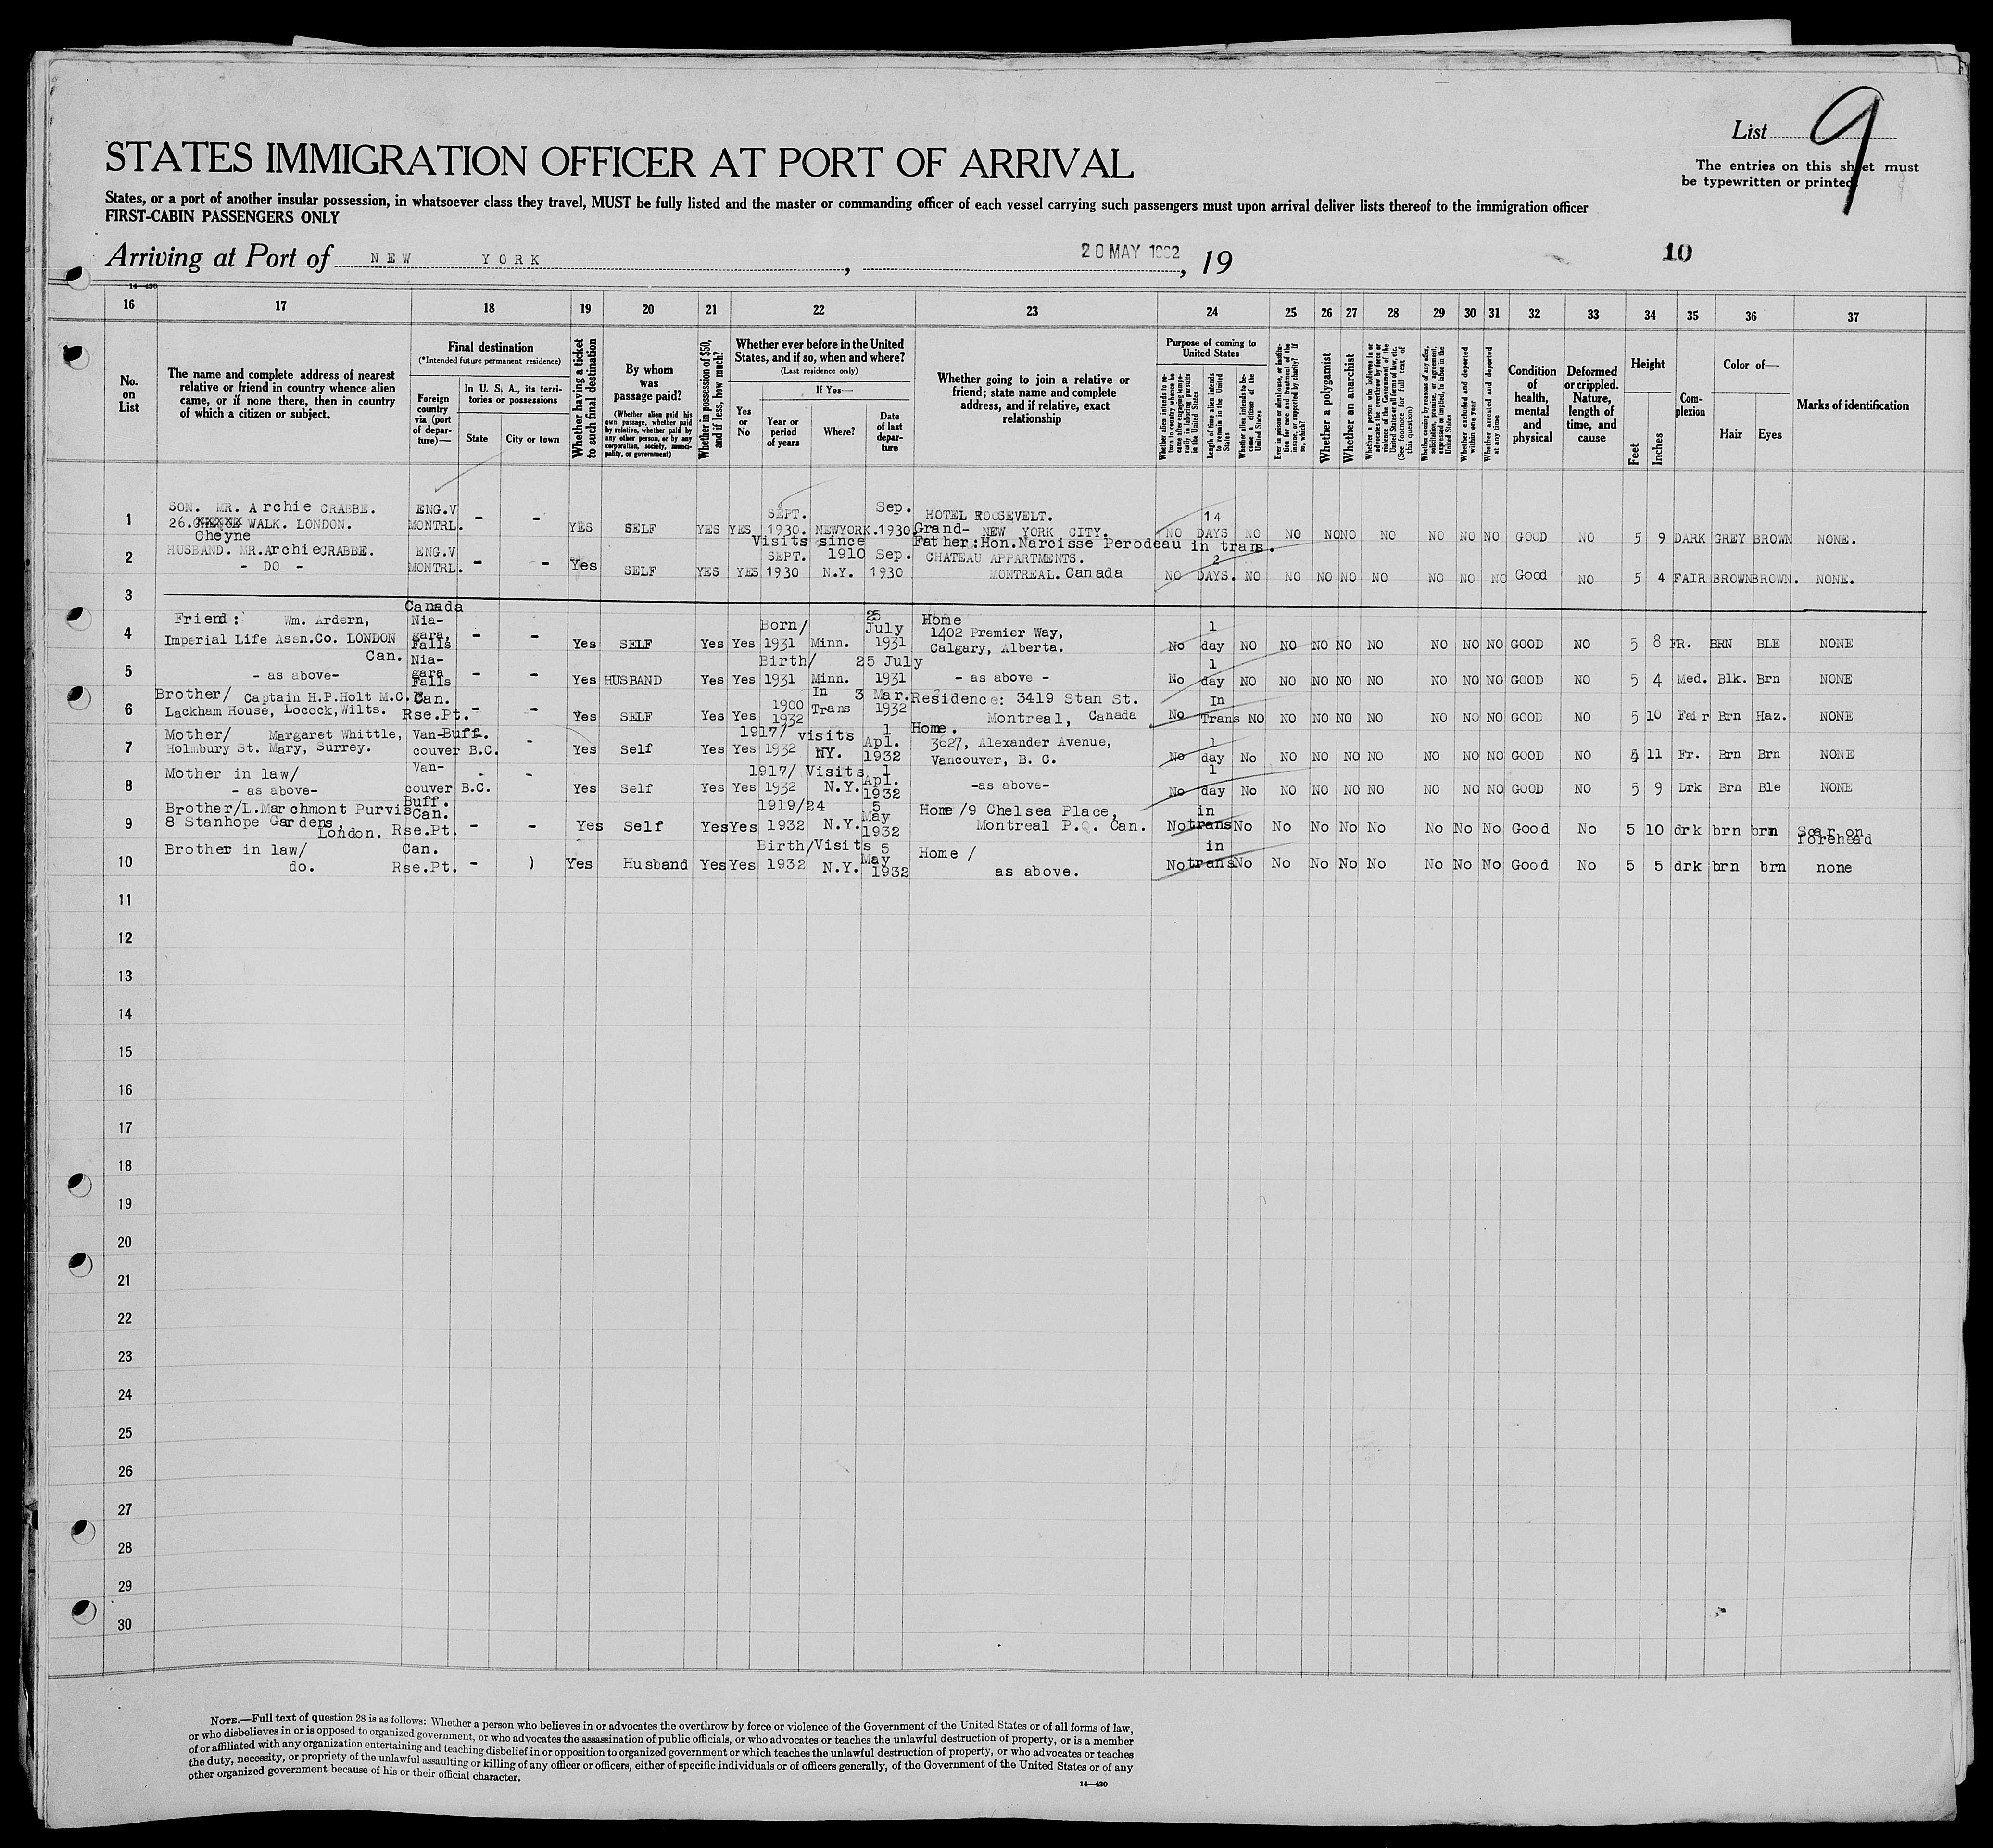 List 9
The entries on this sheet must
be typewritten or printed.
STATES IMMIGRATION OFFICER AT PORT OF ARRIVAL
States, or a port of another insular possession, in whatsoever class they travel, MUST be fully listed and the master or commanding officer of each vessel carrying such passengers must upon arrival deliver lists thereof to the immigration officer
FIRST-CABIN PASSENGERS ONLY
Arriving at Port of NEW YORK, 20 MAY 1932, 19
10
14—430
16 17 18 19 20 21 22 23 24 25 26 27 28 29 30 31 32 33 34 35 36 37
No. on List
The name and complete address of nearest relative or friend in country whence alien came, or if none there, then in country of which a citizen or subject.
Final destination
(*Intended future permanent residence)
Foreign country via (port of departure)—
In U. S. A., its territories or possessions
State
City or town
Whether having a ticket to such final destination
By whom was passage paid?
(Whether alien paid his own passage, whether paid by relative, whether paid by any other person, or by any corporation, society, municipality, or government)
Whether in possession of $50, and if less, how much?
Whether ever before in the United States, and if so, when and where?
(Last residence only)
Yes or No
If Yes—
Year or period of years
Where?
Date of last departure
Whether going to join a relative or friend; state name and complete address, and if relative, exact relationship
Purpose of coming to United States
Whether alien intends to return to country whence he came after engaging temporarily in laboring pursuits in the United States
Length of time alien intends to remain in the United States
Whether alien intends to become a citizen of the United States
Ever in prison or almshouse, or institution for care and treatment of the insane, or supported by charity? If so, which?
Whether a polygamist
Whether an anarchist
Whether a person who believes in or advocates the overthrow by force or violence of the Government of the United States or all forms of law, etc. (See footnote for full text of this question)
Whether coming by reason of any offer, solicitation, promise, or agreement, expressed or implied, to labor in the United States
Whether excluded and deported within one year
Whether arrested and deported at any time
Condition of health, mental and physical
Deformed or crippled. Nature, length of time, and cause
Height
Feet
Inches
Complexion
Color of—
Hair
Eyes
Marks of identification
1 SON. MR. Archie CRABBE. 26. Cheyne WALK. LONDON. ENG.V MONTRL. - - YES SELF YES YES SEPT. 1930. NEWYORK. Sep. 1930 HOTEL ROOSEVELT. NEW YORK CITY. NO 14 DAYS NO NO NO NO NO NO NO NO GOOD NO 5 9 DARK GREY BROWN NONE.
2 HUSBAND. MR. Archie CRABBE. - DO - ENG.V MONTRL. - - Yes SELF YES YES Visits since SEPT. 1910 1930 N.Y. Sep. 1930 Grand-Father: Hon. Narcisse Perodeau in trans. CHATEAU APPARTMENTS. MONTREAL. Canada NO 2 DAYS. NO NO NO NO NO NO NO NO Good NO 5 4 FAIR BROWN BROWN. NONE.
3
4 Friend: Wm. Ardern, Imperial Life Assn.Co. LONDON Can. Canada Niagara, Falls - - Yes SELF Yes Yes Born/ 1931 Minn. 25 July 1931 Home 1402 Premier Way, Calgary, Alberta. No 1 day NO NO NO NO NO NO NO NO GOOD NO 5 8 FR. BRN BLE NONE
5 - as above- Niagara Falls - - Yes HUSBAND Yes Yes Birth/ 1931 Minn. 25 July 1931 - as above - No 1 day NO NO NO NO NO NO NO NO GOOD NO 5 4 Med. Blk. Brn NONE
6 Brother/ Captain H.P.Holt M.C. Lackham House, Locock, Wilts. Can. Rse.Pt. - - Yes SELF Yes Yes 1900 1932 In Trans 3 Mar. 1932 Residence: 3419 Stan St. Montreal, Canada No In Trans NO NO NO NO NO NO NO NO GOOD NO 5 10 Fair Brn Haz. NONE
7 Mother/ Margaret Whittle, Holmbury St. Mary, Surrey. Van-Buff. couver B.C. - Yes Self Yes Yes 1917/ visits 1932 NY. 1 Apl. 1932 Home. 3627, Alexander Avenue, Vancouver, B. C. No 1 day No NO NO NO NO NO NO NO GOOD NO 5 11 Fr. Brn Brn NONE
8 Mother in law/ - as above- Van-couver B.C. Buff. - - Yes Self Yes Yes 1917/ Visits 1932 N.Y. 1 Apl. 1932 -as above- No 1 day No NO NO NO NO NO NO NO GOOD NO 5 9 Drk Brn Ble NONE
9 Brother/L.Marchmont Purvis 8 Stanhope Gardens, London. Can. Rse.Pt. - - Yes Self Yes Yes 1919/24 1932 N.Y. 5 May 1932 Home/9 Chelsea Place, Montreal P.Q. Can. No in trans No No No No No No No No Good No 5 10 drk brn brn Scar on forehead
10 Brother in law/ do. Can. Rse.Pt. - ) Yes Husband Yes Yes Birth/Visits 1932 N.Y. 5 May 1932 Home / as above. No in trans No No No No No No No No Good No 5 5 drk brn brn none
11
12
13
14
15
16
17
18
19
20
21
22
23
24
25
26
27
28
29
30
NOTE.—Full text of question 28 is as follows: Whether a person who believes in or advocates the overthrow by force or violence of the Government of the United States or of all forms of law,
or who disbelieves in or is opposed to organized government, or who advocates the assassination of public officials, or who advocates or teaches the unlawful destruction of property, or is a member
of or affiliated with any organization entertaining and teaching disbelief in or opposition to organized government or which teaches the unlawful destruction of property, or who advocates or teaches
the duty, necessity, or propriety of the unlawful assaulting or killing of any officer or officers, either of specific individuals or of officers generally, of the Government of the United States or of any
other organized government because of his or their official character.
14—430